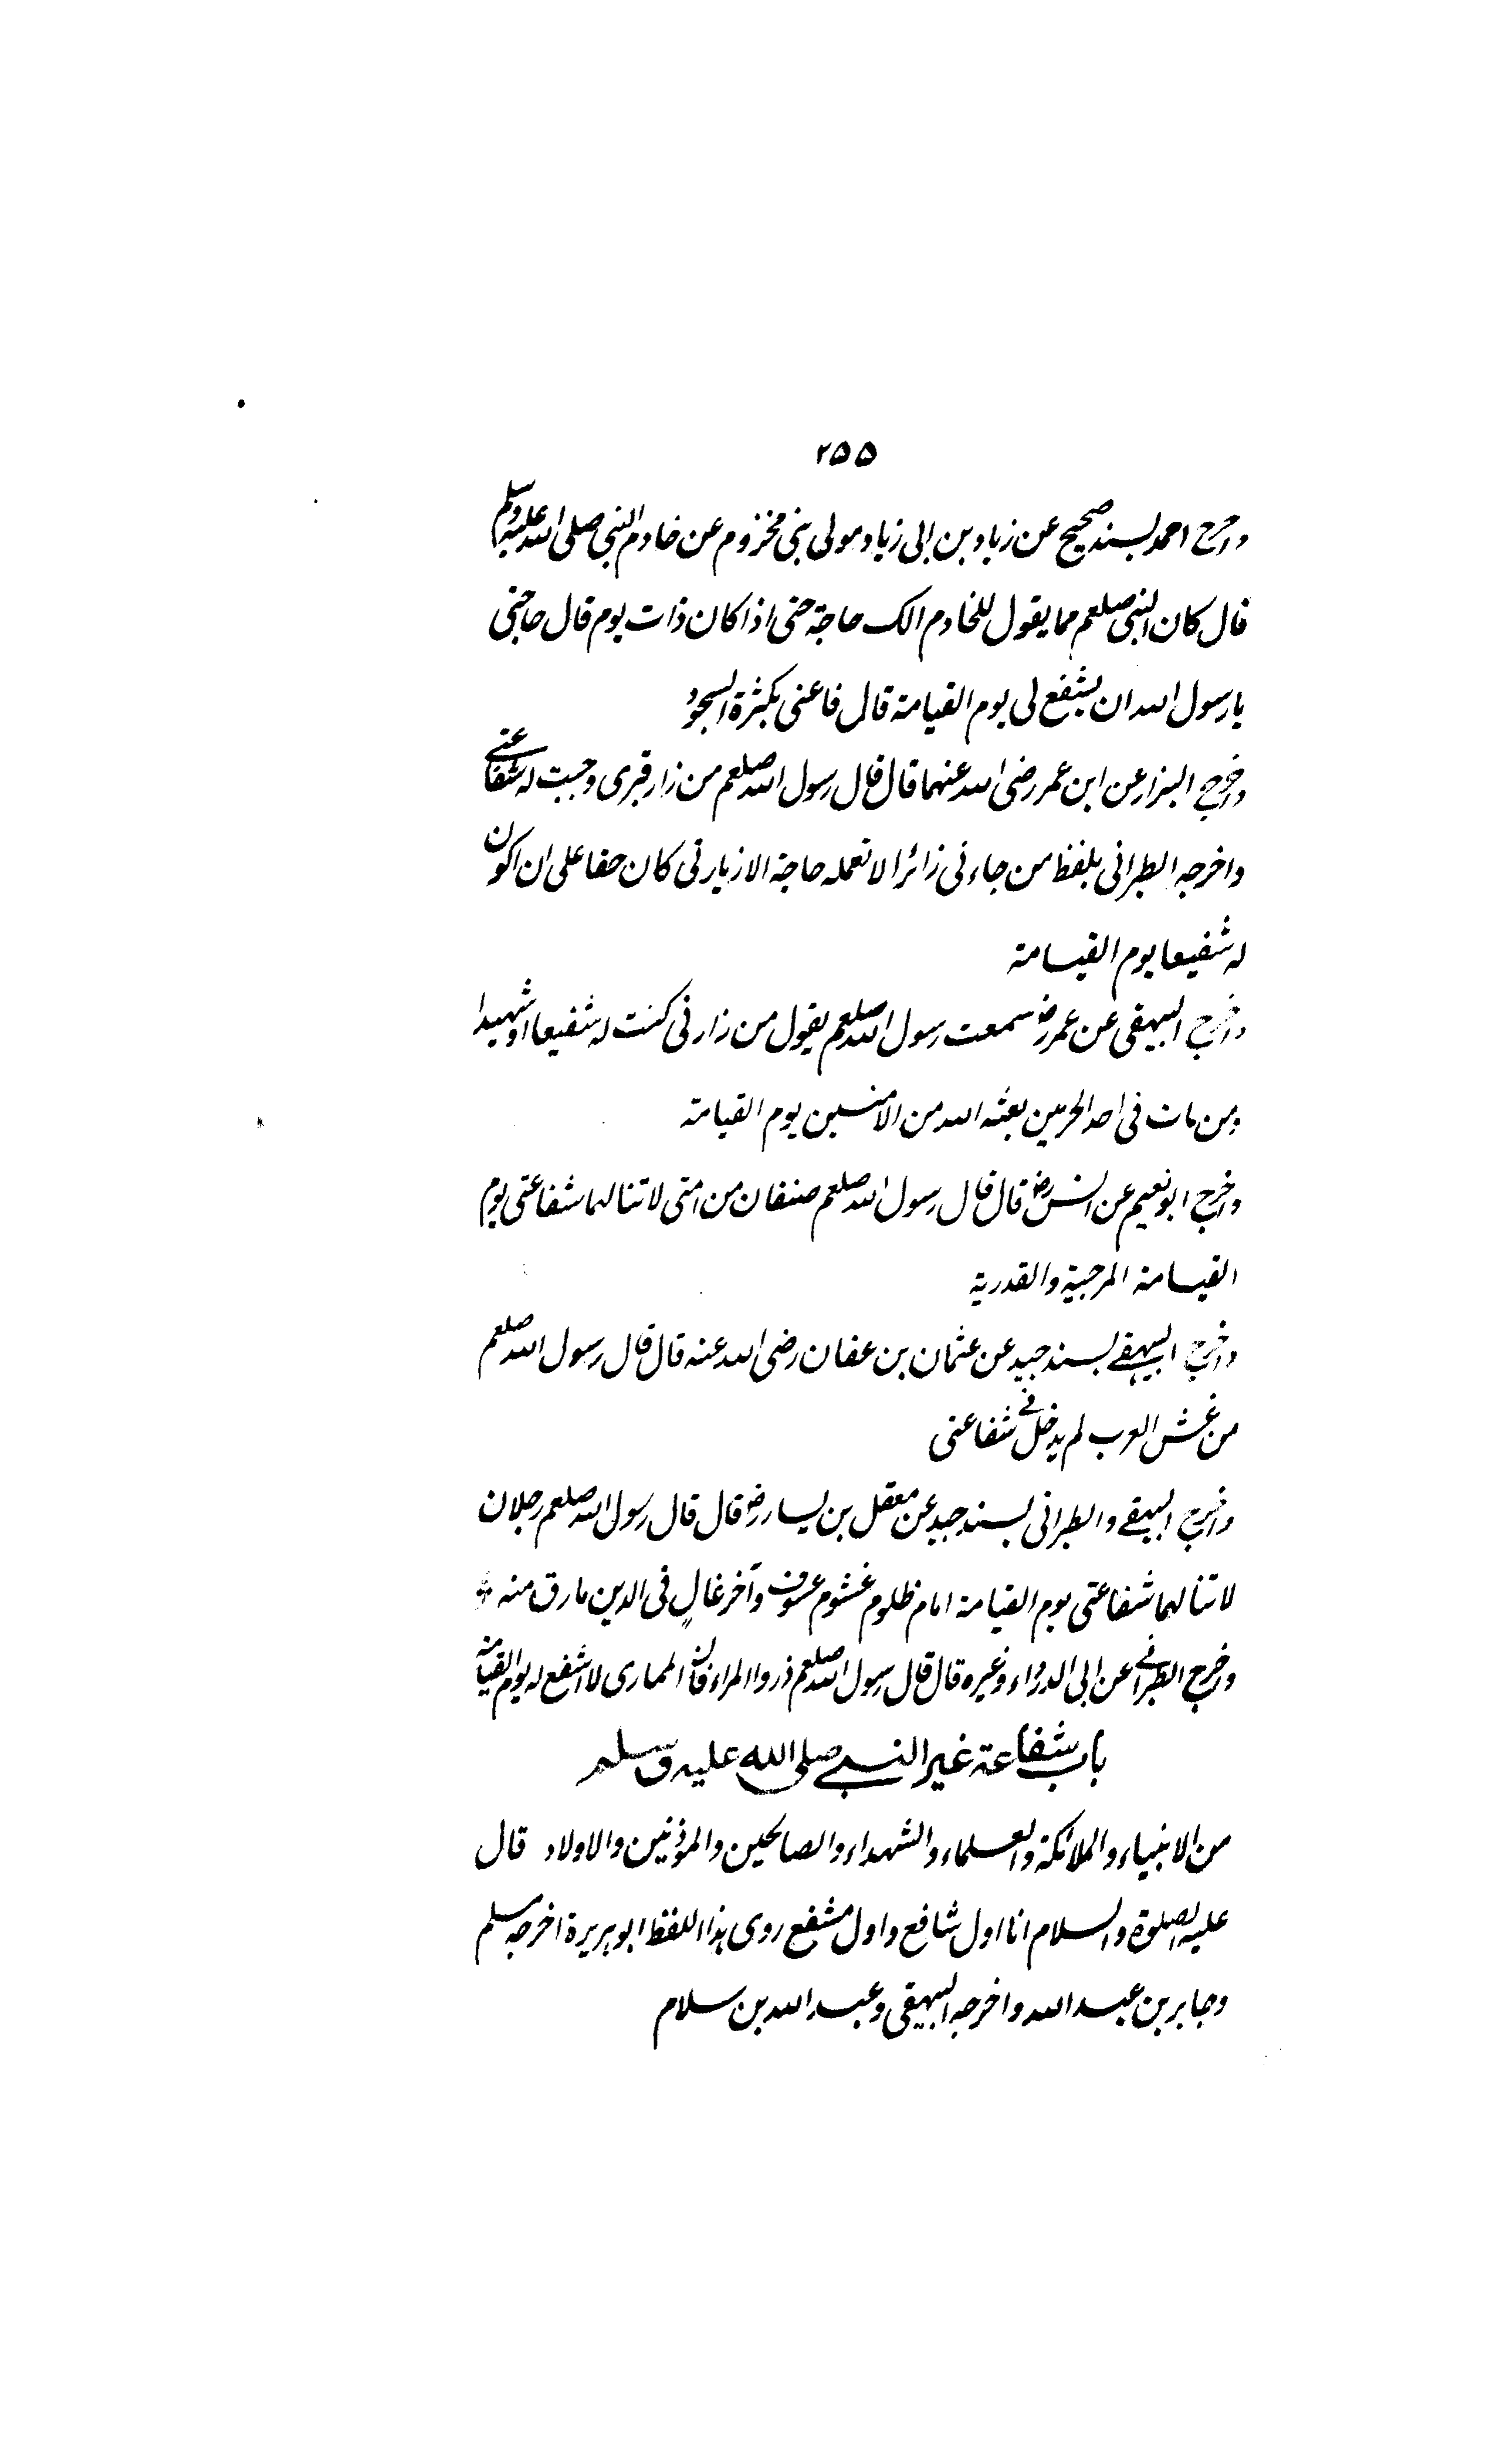 ٢٥٥
واخرج احمد بسند صحيح عن زياد بن ابى زياد مولى بنى مخزوم عن خادم النبى صلى الله عليه وسلم
قال كان النبى صلعم مما يقول للخادم الك حاجة حتى اذا كان ذات يوم قال حاجتى
يا رسول الله ان يشفع لى يوم القيامة قال فاعنى بكثرة السجود
واخرج البزار عن ابن عمر رضى الله عنهما قال قال رسول الله صلعم من زار قبرى وجبت له شفاعتى
واخرجه الطبرانى بلفظ من جاءنى زائرا لا تعمله حاجة الا زيارتى كان حقا على ان اكون
له شفيعا يوم القيامة
واخرج البيهقى عن عمر رض سمعت رسول الله صلعم يقول من زارنى كنت له شفيعا او شهيدا
ومن مات فى احد الحرمين بعثه الله من الامنين يوم القيامة
واخرج ابو نعيم عن انس رض قال قال رسول الله صلعم صنفان من امتى لا تنالهما شفاعتى يوم
القيامة المرجية والقدرية
واخرج البيهقى بسند جيد عن عثمان بن عفان رضى الله عنه قال قال رسول الله صلعم
من غش العرب لم يدخل فى شفاعتى
واخرج البيهقى والطبرانى بسند جيد عن معقل بن يسار رض قال قال رسول الله صلعم رجلان
لا تنالهما شفاعتى يوم القيامة امام ظلوم غشوم عسوف وآخر غالٍ فى الدين مارق منه
واخرج الطبرانى عن ابى الدرداء وغيره قال قال رسول الله صلعم ذروا المراء فان الممارى لا اشفع له يوم القيامة
باب شفاعة غير النبى صلى الله عليه وسلم
من الانبياء والملائكة والعلماء والشهداء والصالحين والمؤذنين والاولاد قال
عليه الصلوة والسلام انا اول شافع واول مشفع روى هذا اللفظ ابو هريرة اخرجه مسلم
وجابر بن عبد الله واخرجه البيهقى وعبد الله بن سلام